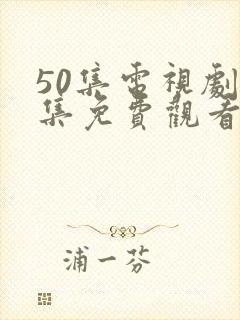 50集電視劇
集免費觀看
浦一芬